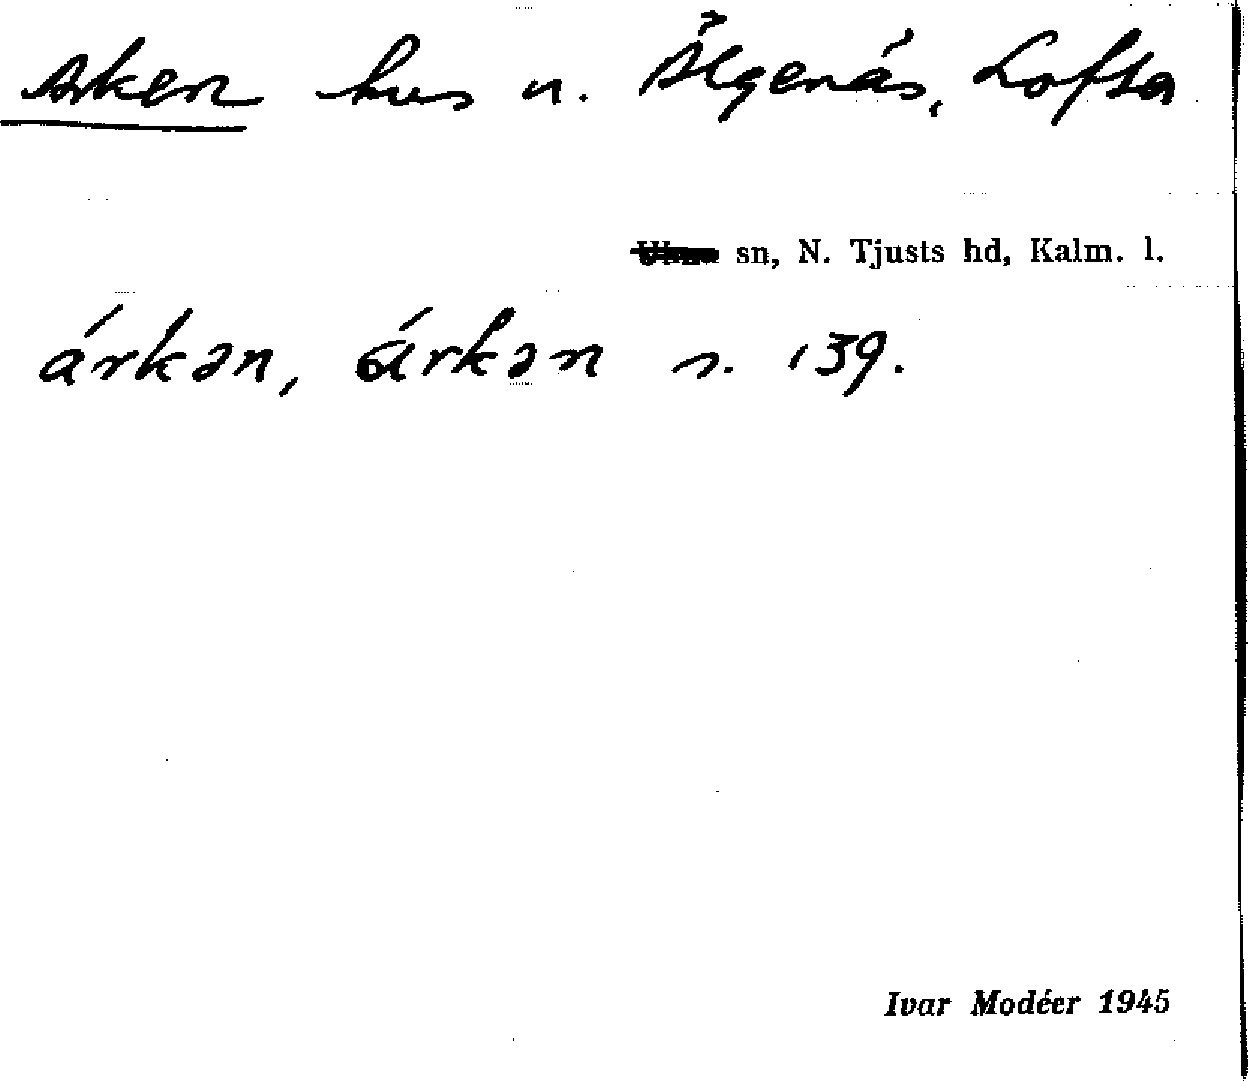 Arken hus n. Älgenäs, Lofta
sn, N. Tjusts hd, Kalm. l.
árkən, ɑ́rkən s. 139.
Ivar Modéer 1945